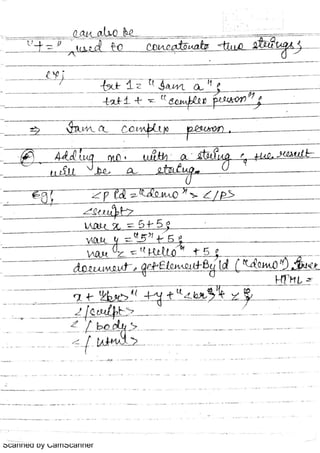 can also be
"+=" used to concatenate two strings
eg;
txt 1 = "Iam a";
txt1 += "complex person";
⇒ Iam a complex person.
Adding no. with a string, the result
will be a string.
Eg; <p id="demo"></p>
<script>
var x = 5+5;
var y = "5"+5;
var z = "Hello" +5;
document.getElementById("demo").inner
HTML =
x + "<br>" +y+"<br>"+ z;
</script>
</body>
</html>
Scanned by CamScanner